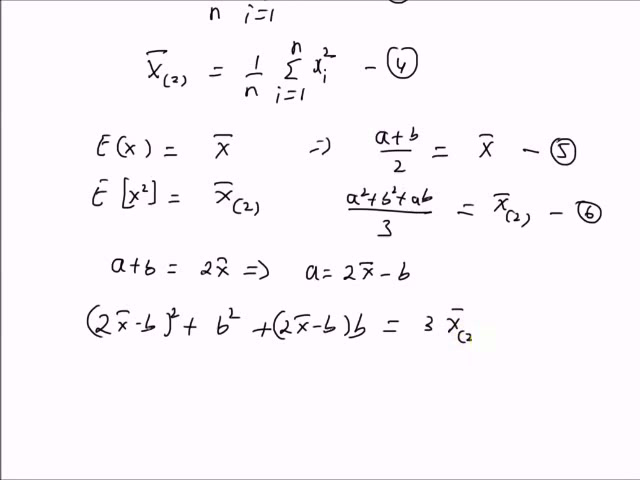 n i=1
x̄(2) = 1/n Σ(i=1 to n) xᵢ² - ④
E(x) = x̄ ⇒ (a+b)/2 = x̄ - ⑤
E[x²] = x̄(2) (a²+b²+ab)/3 = x̄(2) - ⑥
a+b = 2x̄ ⇒ a = 2x̄-b
(2x̄-b)² + b² + (2x̄-b)b = 3 x̄(2